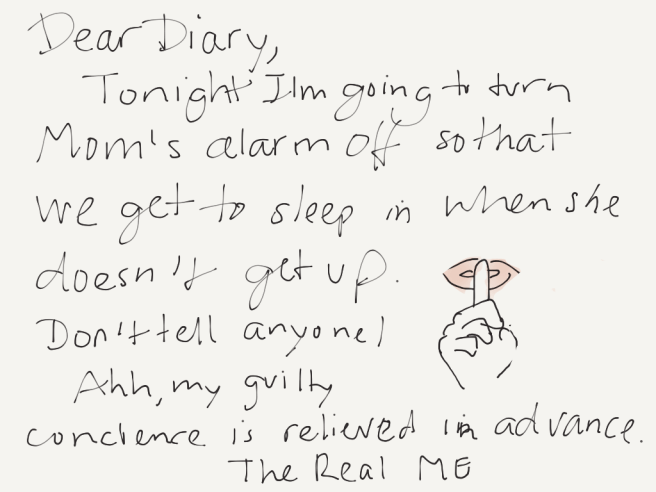 Dear Diary,
Tonight I'm going to turn
Mom's alarm off so that
we get to sleep in when she
doesn't get up.
Don't tell anyone!
Ahh, my guilty
concience is relieved in advance.
The Real ME